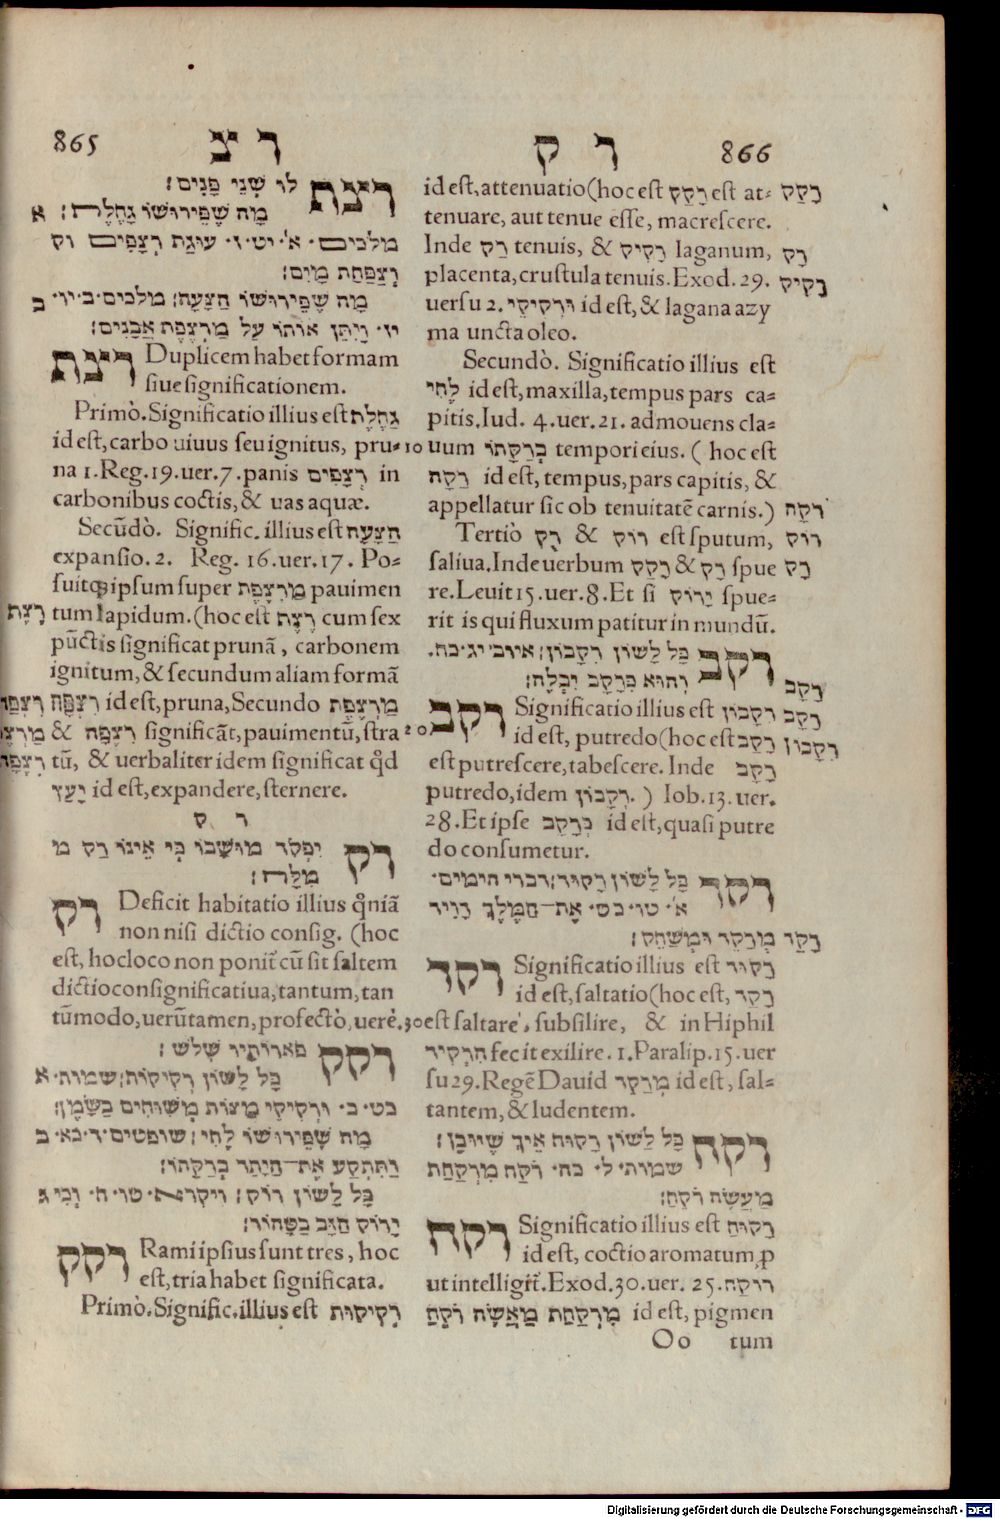 865 רצ
רצת לו שְׁנֵי פָּנִים׃
מַה שֶּׁפֵּירוּשׁוֹ גַּחֶלֶת׃ א
מלכים· א׳ יט· ו· עוּגַת רְצָפִים וק
וְצַפַּחַת מָיִם׃
מַה שֶּׁפֵּירוּשׁוֹ הַצָּעָה׃ מלכים· ב· יו· ב
יז· וַיִּתֵּן אוֹתוֹ עַל מַרְצֶפֶת אֲבָנִים׃
רצת Duplicem habet formam
siue significationem.
Primò. Significatio illius est גַּחֶלֶת
id est, carbo uiuus seu ignitus, pru-
na 1. Reg. 19. uer. 7. panis רְצָפִים in
carbonibus coctis, & uas aquæ.
Secũdò. Signific. illius est הַצָּעָה
expansio. 2. Reg. 16. uer. 17. Po-
suitq; ipsum super מַרְצֶפֶת pauimen
רָצֶת tum lapidum. (hoc est רָצֶת cum sex
pũctis significat prunã, carbonem
ignitum, & secundum aliam formã
רִצְפָּה id est, pruna, Secundo מַרְצֶפֶת
& רִצְפָּה significãt, pauimentũ, stra
tũ, & uerbaliter idem significat qđ
יָצַע id est, expandere, sternere.
ר ק
רק יפקד מושָׁבוֹ כִּי אֵינוֹ רַק מִ
מִלָּה׃
רק Deficit habitatio illius qm̃iã
non nisi dictio consig. (hoc
est, hoc loco non ponit̃ cũ sit saltem
dictio consignificatiua, tantum, tan
tũmodo, uerũtamen, profectò, uerè.
רקק פארוֹתָיו שָׁלֹשׁ׃
כָּל לְשׁוֹן רְקִיקוּת׃ שמות· א
כט· ב· וּרְקִיקֵי מַצּוֹת מְשׁוּחִים בַּשָּׁמֶן׃
מַה שֶּׁפֵּירוּשׁוֹ לֶחִי׃ שופטים· ד· כא· ב
וַתִּתְקַע אֶת־הַיָּתֵד בְּרַקָּתוֹ׃
כָּל לְשׁוֹן רוֹק׃ ויקרא· טו· ח· וְכִי ג
יָרוֹק הַזָּב בַּטָּהוֹר׃
רקק Rami ipsius sunt tres, hoc
est, tria habet significata.
Primò. Signific. illius est רְקִיקוּת
רק 866
id est, attenuatio (hoc est רָקַק est at- רָקַק
tenuare, aut tenue esse, macrescere.
Inde רַק tenuis, & רָקִיק laganum, רַק
placenta, crustula tenuis. Exod. 29. רָקִיק
uersu 2. וּרְקִיקֵי id est, & lagana azy
ma uncta oleo.
Secundò. Significatio illius est
לֶחִי id est, maxilla, tempus pars ca-
pitis. Iud. 4. uer. 21. admouens cla-
10 uum בְּרַקָּתוֹ tempori eius. (hoc est
רַקָּה id est, tempus, pars capitis, &
appellatur sic ob tenuitatẽ carnis.) רַקָּה
Tertiò רֹק & רוֹק est sputum, רוֹק
saliua. Inde uerbum רָקַק & רַק spue רַק
re. Leuit 15. uer. 8. Et si יָרוֹק spue-
rit is qui fluxum patitur in mundũ.
רקב כָּל לְשׁוֹן רִקָּבוֹן׃ איוב· יג· כח·
וְהוּא כְּרָקָב יִבְלֶה׃ רָקַב
רקב Significatio illius est רִקָּבוֹן רָקָב
20 id est, putredo (hoc est רָקַב רִקָּבוֹן
est putrescere, tabescere. Inde רָקָב
putredo, idem רִקָּבוֹן.) Iob. 13. uer.
28. Et ipse כְּרָקָב id est, quasi putre
do consumetur.
רקד כָּל לְשׁוֹן רִקּוּד׃ דברי הימים·
א׳ טו· כט· אֶת־הַמֶּלֶךְ דָּוִיד
מְרַקֵּד וּמְשַׂחֵק׃ רָקַד
רקד Significatio illius est רִקּוּד
id est, saltatio (hoc est, רָקַד
30 est saltare, subsilire, & in Hiphil
הִרְקִיד fecit exilire. 1. Paralip. 15. uer
su 29. Regẽ Dauid מְרַקֵּד id est, sal-
tantem, & ludentem.
רקח כָּל לְשׁוֹן רִקּוּחַ אֵיךְ שֶׁיּוּבָן׃
שמות· ל· כה· רֹקַח מִרְקַחַת
מַעֲשֵׂה רֹקֵחַ׃
רקח Significatio illius est רִקּוּחַ
id est, coctio aromatum, ꝓ
ut intelligit̃. Exod. 30. uer. 25. רוקח
מִרְקַחַת מַעֲשֵׂה רֹקֵחַ id est, pigmen
Oo tum
Digitalisierung gefördert durch die Deutsche Forschungsgemeinschaft - DFG